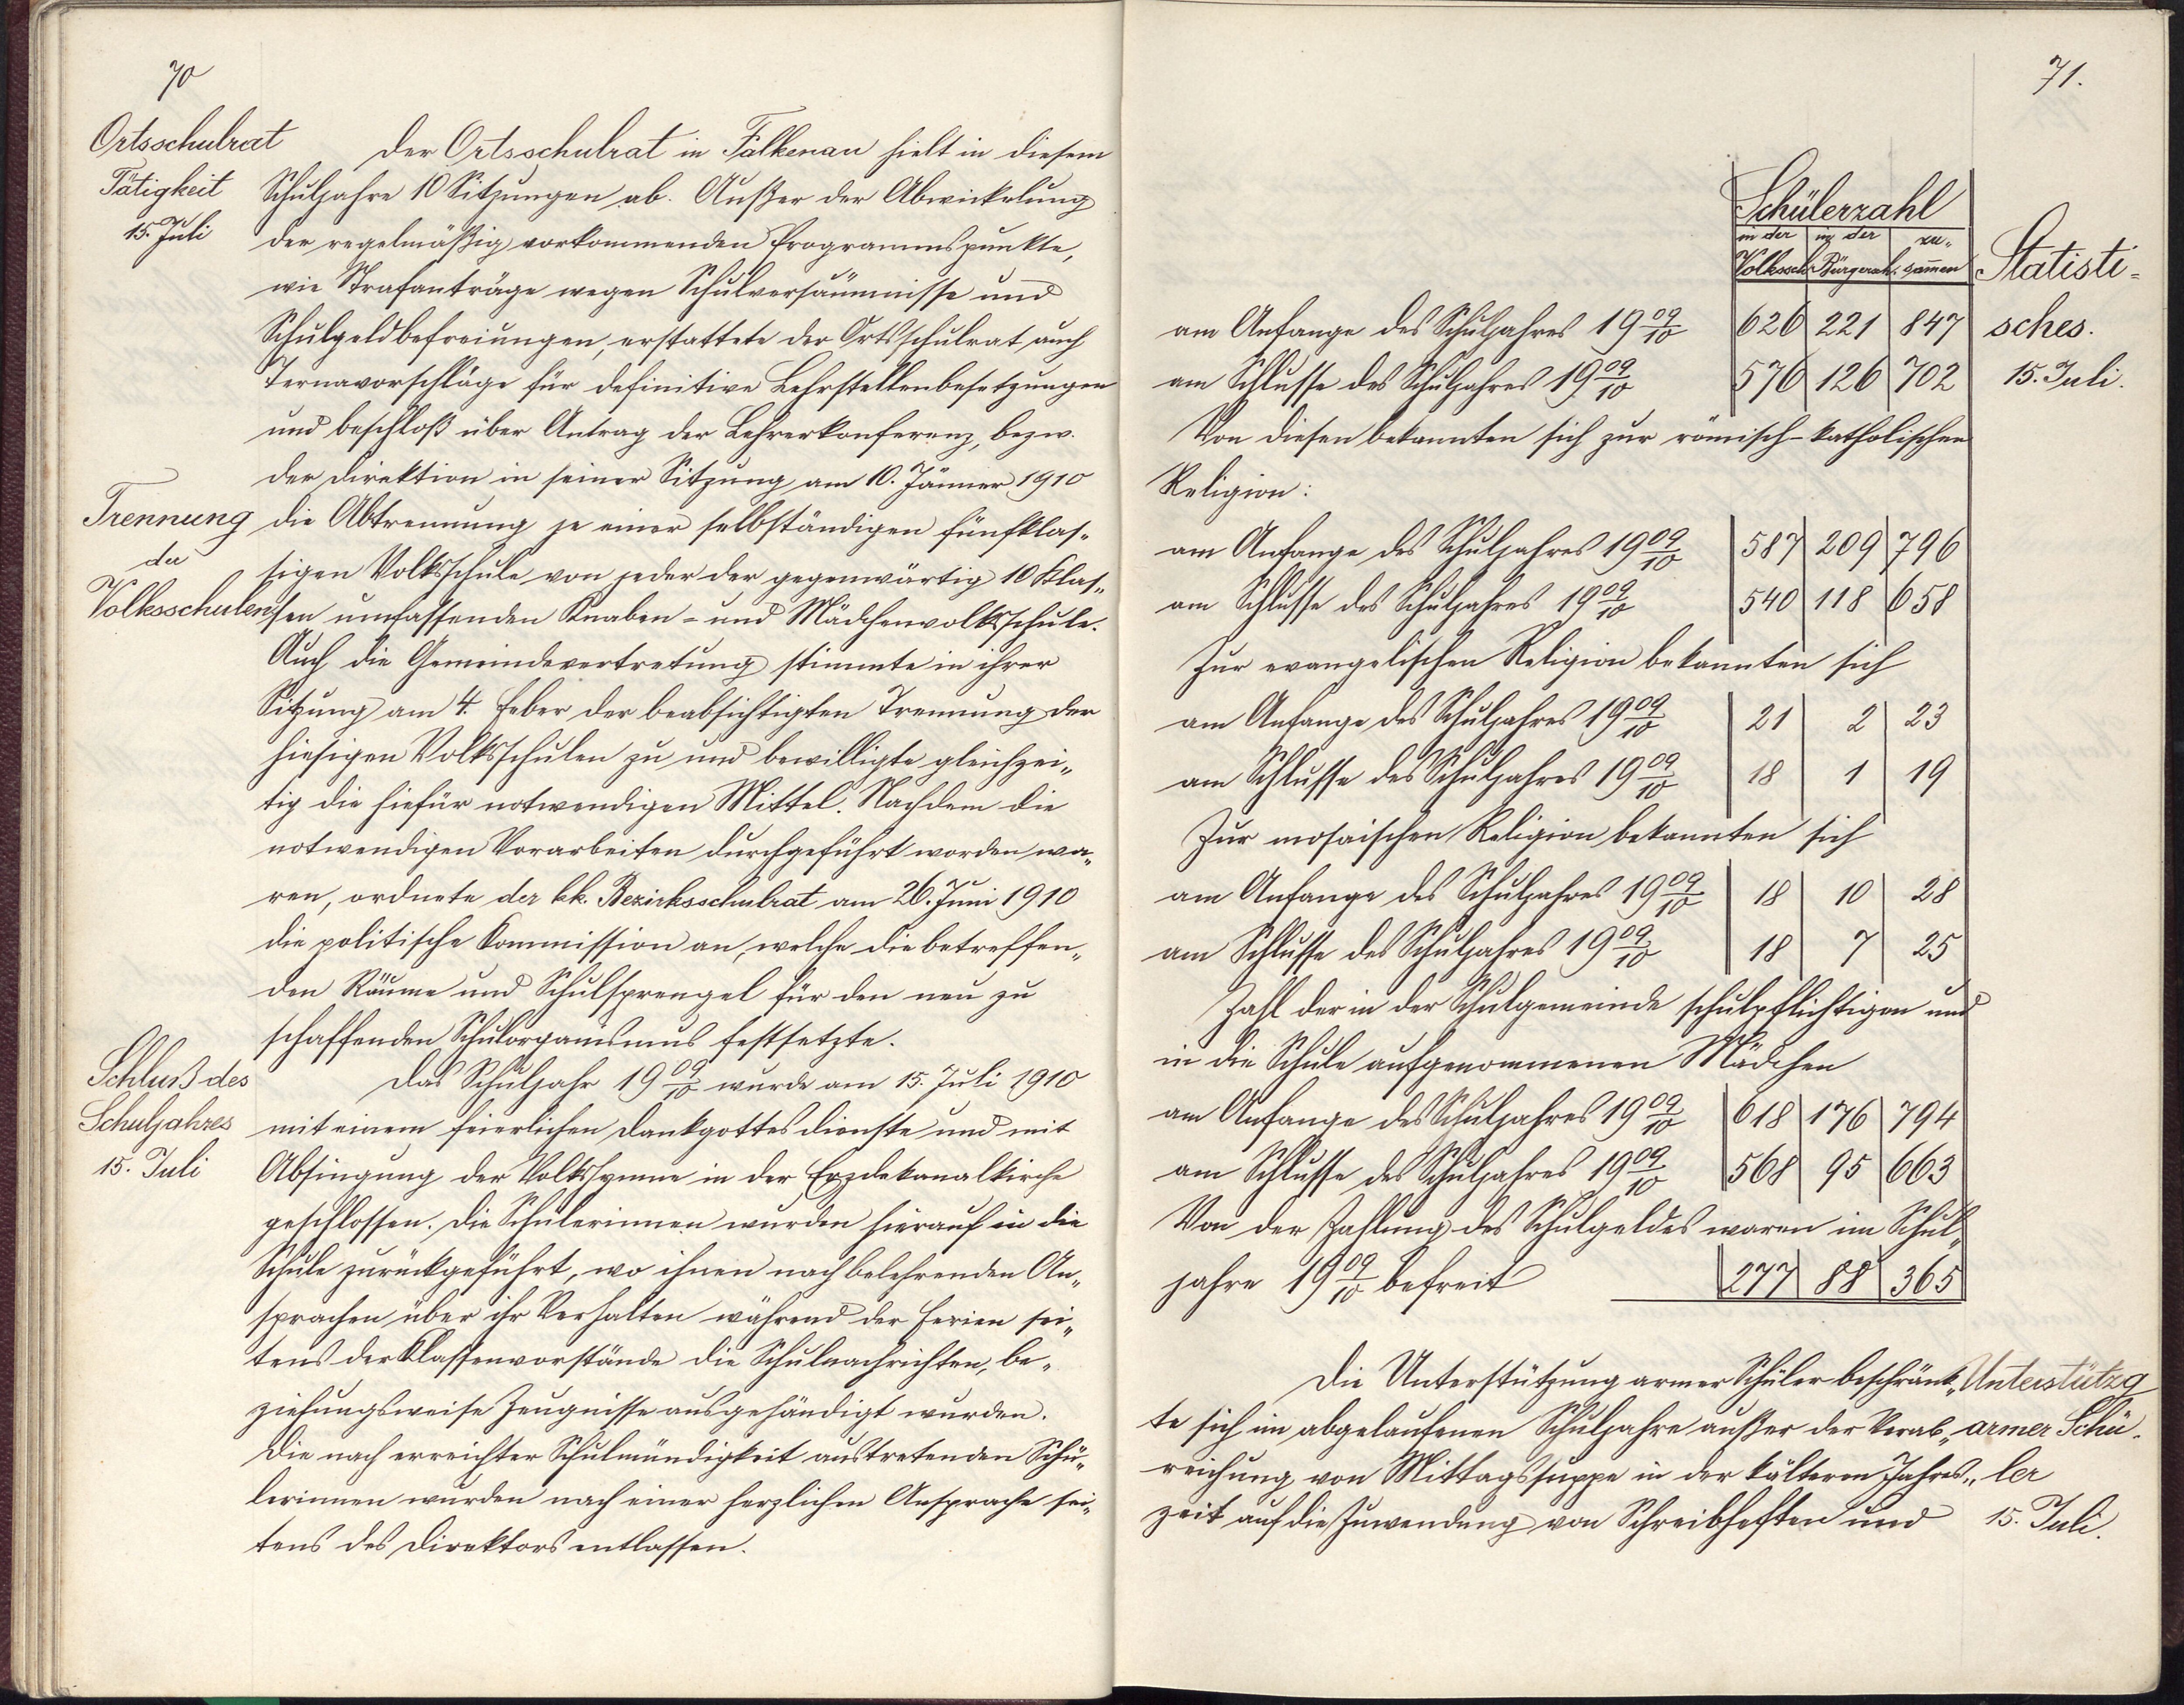 70
Ortsschulrat
Tätigkeit
15. Juli
Der Ortsschulrat in Falkenau hielt in diesem
Schuljahre 10 Sitzungen ab. Außer der Abwickelung
der regelmäßig vorkommenden Programmspunkte,
wie Strafanträge wegen Schulversäumnisse und
Schulgeldbefreiungen, erstattete der Ortsschulrat auch
Ternavorschläge für definitive Lehrstellenbesetzungen
und beschloß über Antrag der Lehrerkonferenz, bezw.
der Direktion in seiner Sitzung am 10. Jänner 1910
Trennung
der
Volksschulen
die Abtrennung je einer selbständigen fünfklas„
sigen Volksschule von jeder der gegenwärtig 10 Klas„
sen umfassenden Knaben- und Mädchenvolksschule.
Auch die Gemeindevertretung stimmte in ihrer
Sitzung am 4. Feber der beabsichtigten Trennung der
hiesigen Volksschulen zu und bewilligte gleichzei„
tig die hiefür notwendigen Mittel. Nachdem die
notwendigen Vorarbeiten durchgeführt worden wa„
ren, ordnete der kk. Bezirksschulrat am 26. Juni 1910
die politische Kommission an, welche die betreffen„
den Räume und Schulsprengel für den neu zu
schaffenden Schulorganismus festsetzte.
Schluß des
Schuljahres
15. Juli
Das Schuljahr 19 09/10 wurde am 15. Juli 1910
mit einem feierlichen Dankgottesdienste und mit
Absingung der Volkshymne in der Erzdekanalkirche
geschlossen. Die Schülerinnen wurden hierauf in die
Schule zurückgeführt, wo ihnen nach belehrenden An„
sprachen über ihr Verhalten während der Ferien sei„
tens der Klassenvorstände die Schulnachrichten, be„
ziehungsweise Zeugnisse ausgehändigt wurden.
Die nach erreichter Schulmündigkeit austretenden Schü„
lerinnen wurden nach einer herzlichen Ansprache sei„
tens des Direktors entlassen.
71.
Schülerzahl
in der Volkssch. in der Bürgersch. zu„sammen
Statisti-
sches.
15. Juli.
am Anfange des Schuljahres 19 09/10 626 221 847
am Schlusse des Schuljahres 19 09/10 576 126 702
Von diesen bekannten sich zur römisch-katholischen
Religion:
am Anfange des Schuljahres 19 09/10 587 209 796
am Schlusse des Schuljahres 19 09/10 540 118 658
Zur evangelischen Religion bekannten sich
am Anfange des Schuljahres 19 09/10 21 2 23
am Schlusse des Schuljahres 19 09/10 18 1 19
Zur mosaischen Religion bekannten sich
am Anfange des Schuljahres 19 09/10 18 10 28
am Schlusse des Schuljahres 19 09/10 18 7 25
Zahl der in der Schulgemeinde schulpflichtigen und
in die Schule aufgenommenen Mädchen
am Anfange des Schuljahres 19 09/10 618 176 794
am Schlusse des Schuljahres 19 09/10 568 95 663
Von der Zahlung des Schulgeldes waren im Schul„
jahre 19 09/10 befreit 277 88 365
Die Unterstützung armer Schüler beschränk„
te sich im abgelaufenen Schuljahre außer der Verab„
reichung von Mittagssuppe in der kälteren Jahres„
zeit auf die Zuwendung von Schreibheften und
Unterstützg
armer Schü-
ler
15. Juli.